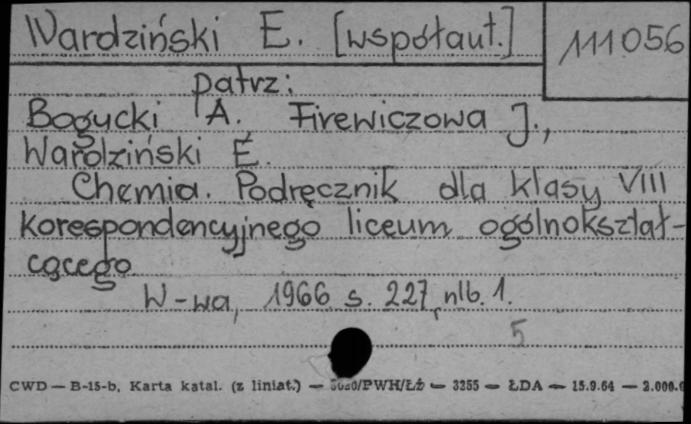 Wardziński E. [współaut.]
111056
patrz:
Bogucki A. Firewiczowa J.,
Wardziński E.
Chemia. Podręcznik dla klasy VIII
korespondencyjnego liceum ogólnokształ-
cącego
W-wa, 1966 s. 227, nlb. 1.
5
CWD — B-15-b, Karta katal. (z liniat.) — /PWH/Łż — 3255 — ŁDA — 15.9.64 — 2.000.0